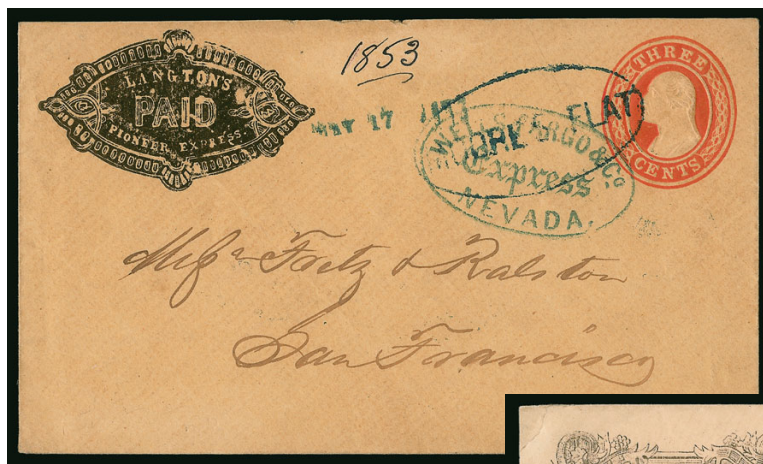 LANGTON'S
PAID
PIONEER EXPRESS.
1853
MAY 17
FLAT
WELLS FARGO & Co
Express
NEVADA.
THREE
CENTS
Messrs Fretz & Ralston
San Francisco